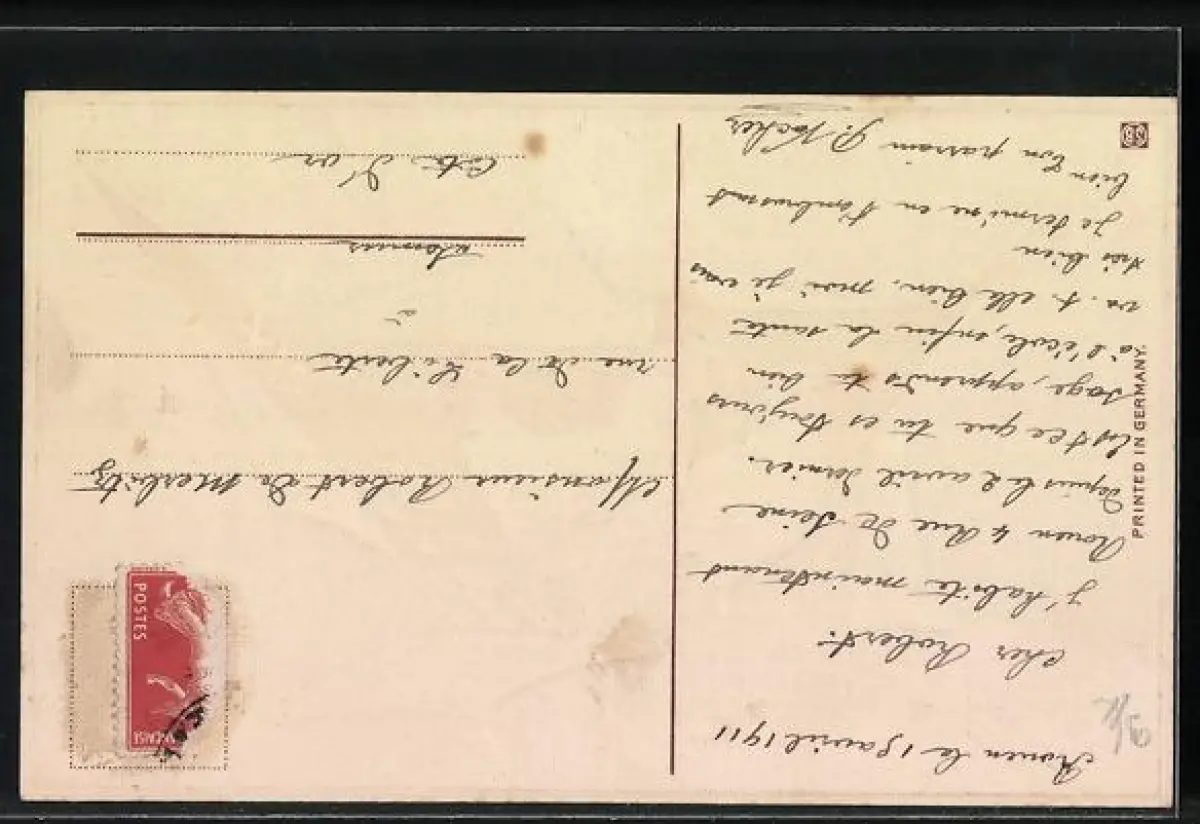 Rouen le 18 avril 1911
Cher Robert.
J'habite maintenant
Rouen 4 Rue de Seine
depuis le 2 avril dernier.
Est ce que tu es toujours
sage, apprends tu bien
à l'école, enfin la santé
va-t-elle bien, moi je vais
très bien
je termine en t'embrassant
bien Ton parrain P.
Monsieur Robert de Merbitz
rue de la Liberté
à
Côte d'or
POSTES
PRINTED IN GERMANY.